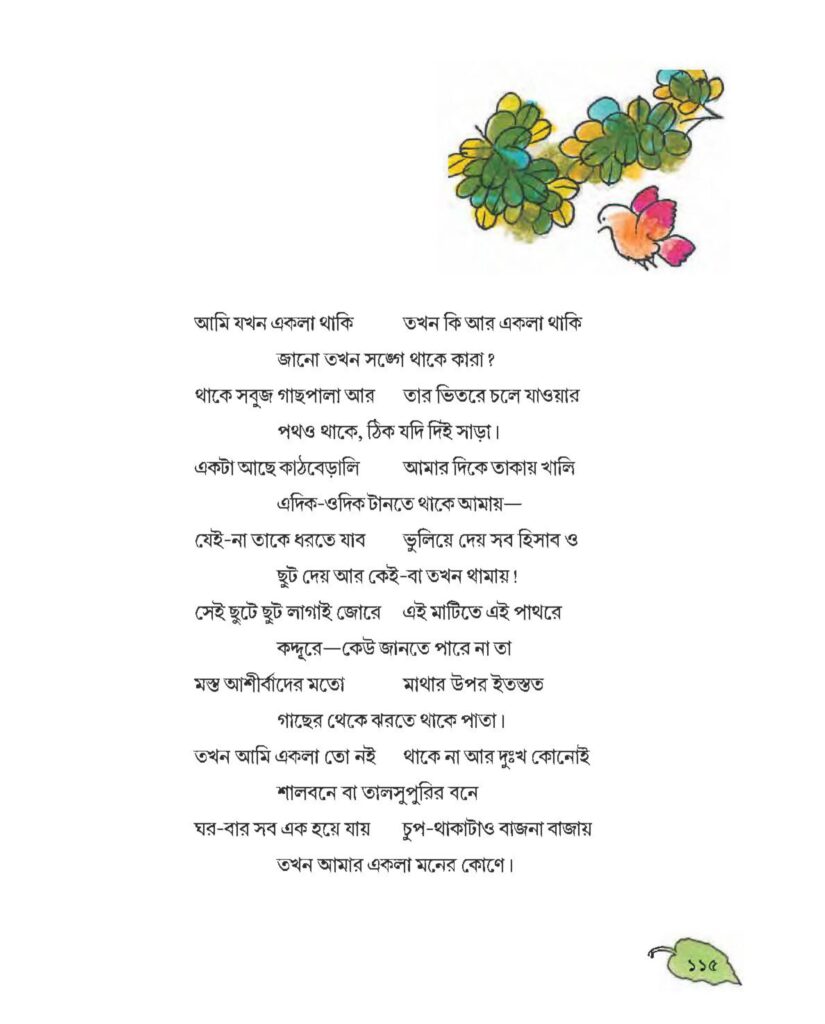 আমি যখন একলা থাকি তখন কি আর একলা থাকি
জানো তখন সঙ্গে থাকে কারা?
থাকে সবুজ গাছপালা আর তার ভিতরে চলে যাওয়ার
পথও থাকে, ঠিক যদি দিই সাড়া।
একটা আছে কাঠবেড়ালি আমার দিকে তাকায় খালি
এদিক-ওদিক টানতে থাকে আমায়—
যেই-না তাকে ধরতে যাব ভুলিয়ে দেয় সব হিসাব ও
ছুট দেয় আর কেই-বা তখন থামায়!
সেই ছুটে ছুট লাগাই জোরে এই মাটিতে এই পাথরে
কদ্দূরে—কেউ জানতে পারে না তা
মস্ত আশীর্বাদের মতো মাথার উপর ইতস্তত
গাছের থেকে ঝরতে থাকে পাতা।
তখন আমি একলা তো নই থাকে না আর দুঃখ কোনোই
শালবনে বা তালসুপুরির বনে
ঘর-বার সব এক হয়ে যায় চুপ-থাকাটাও বাজনা বাজায়
তখন আমার একলা মনের কোণে।
১১৫